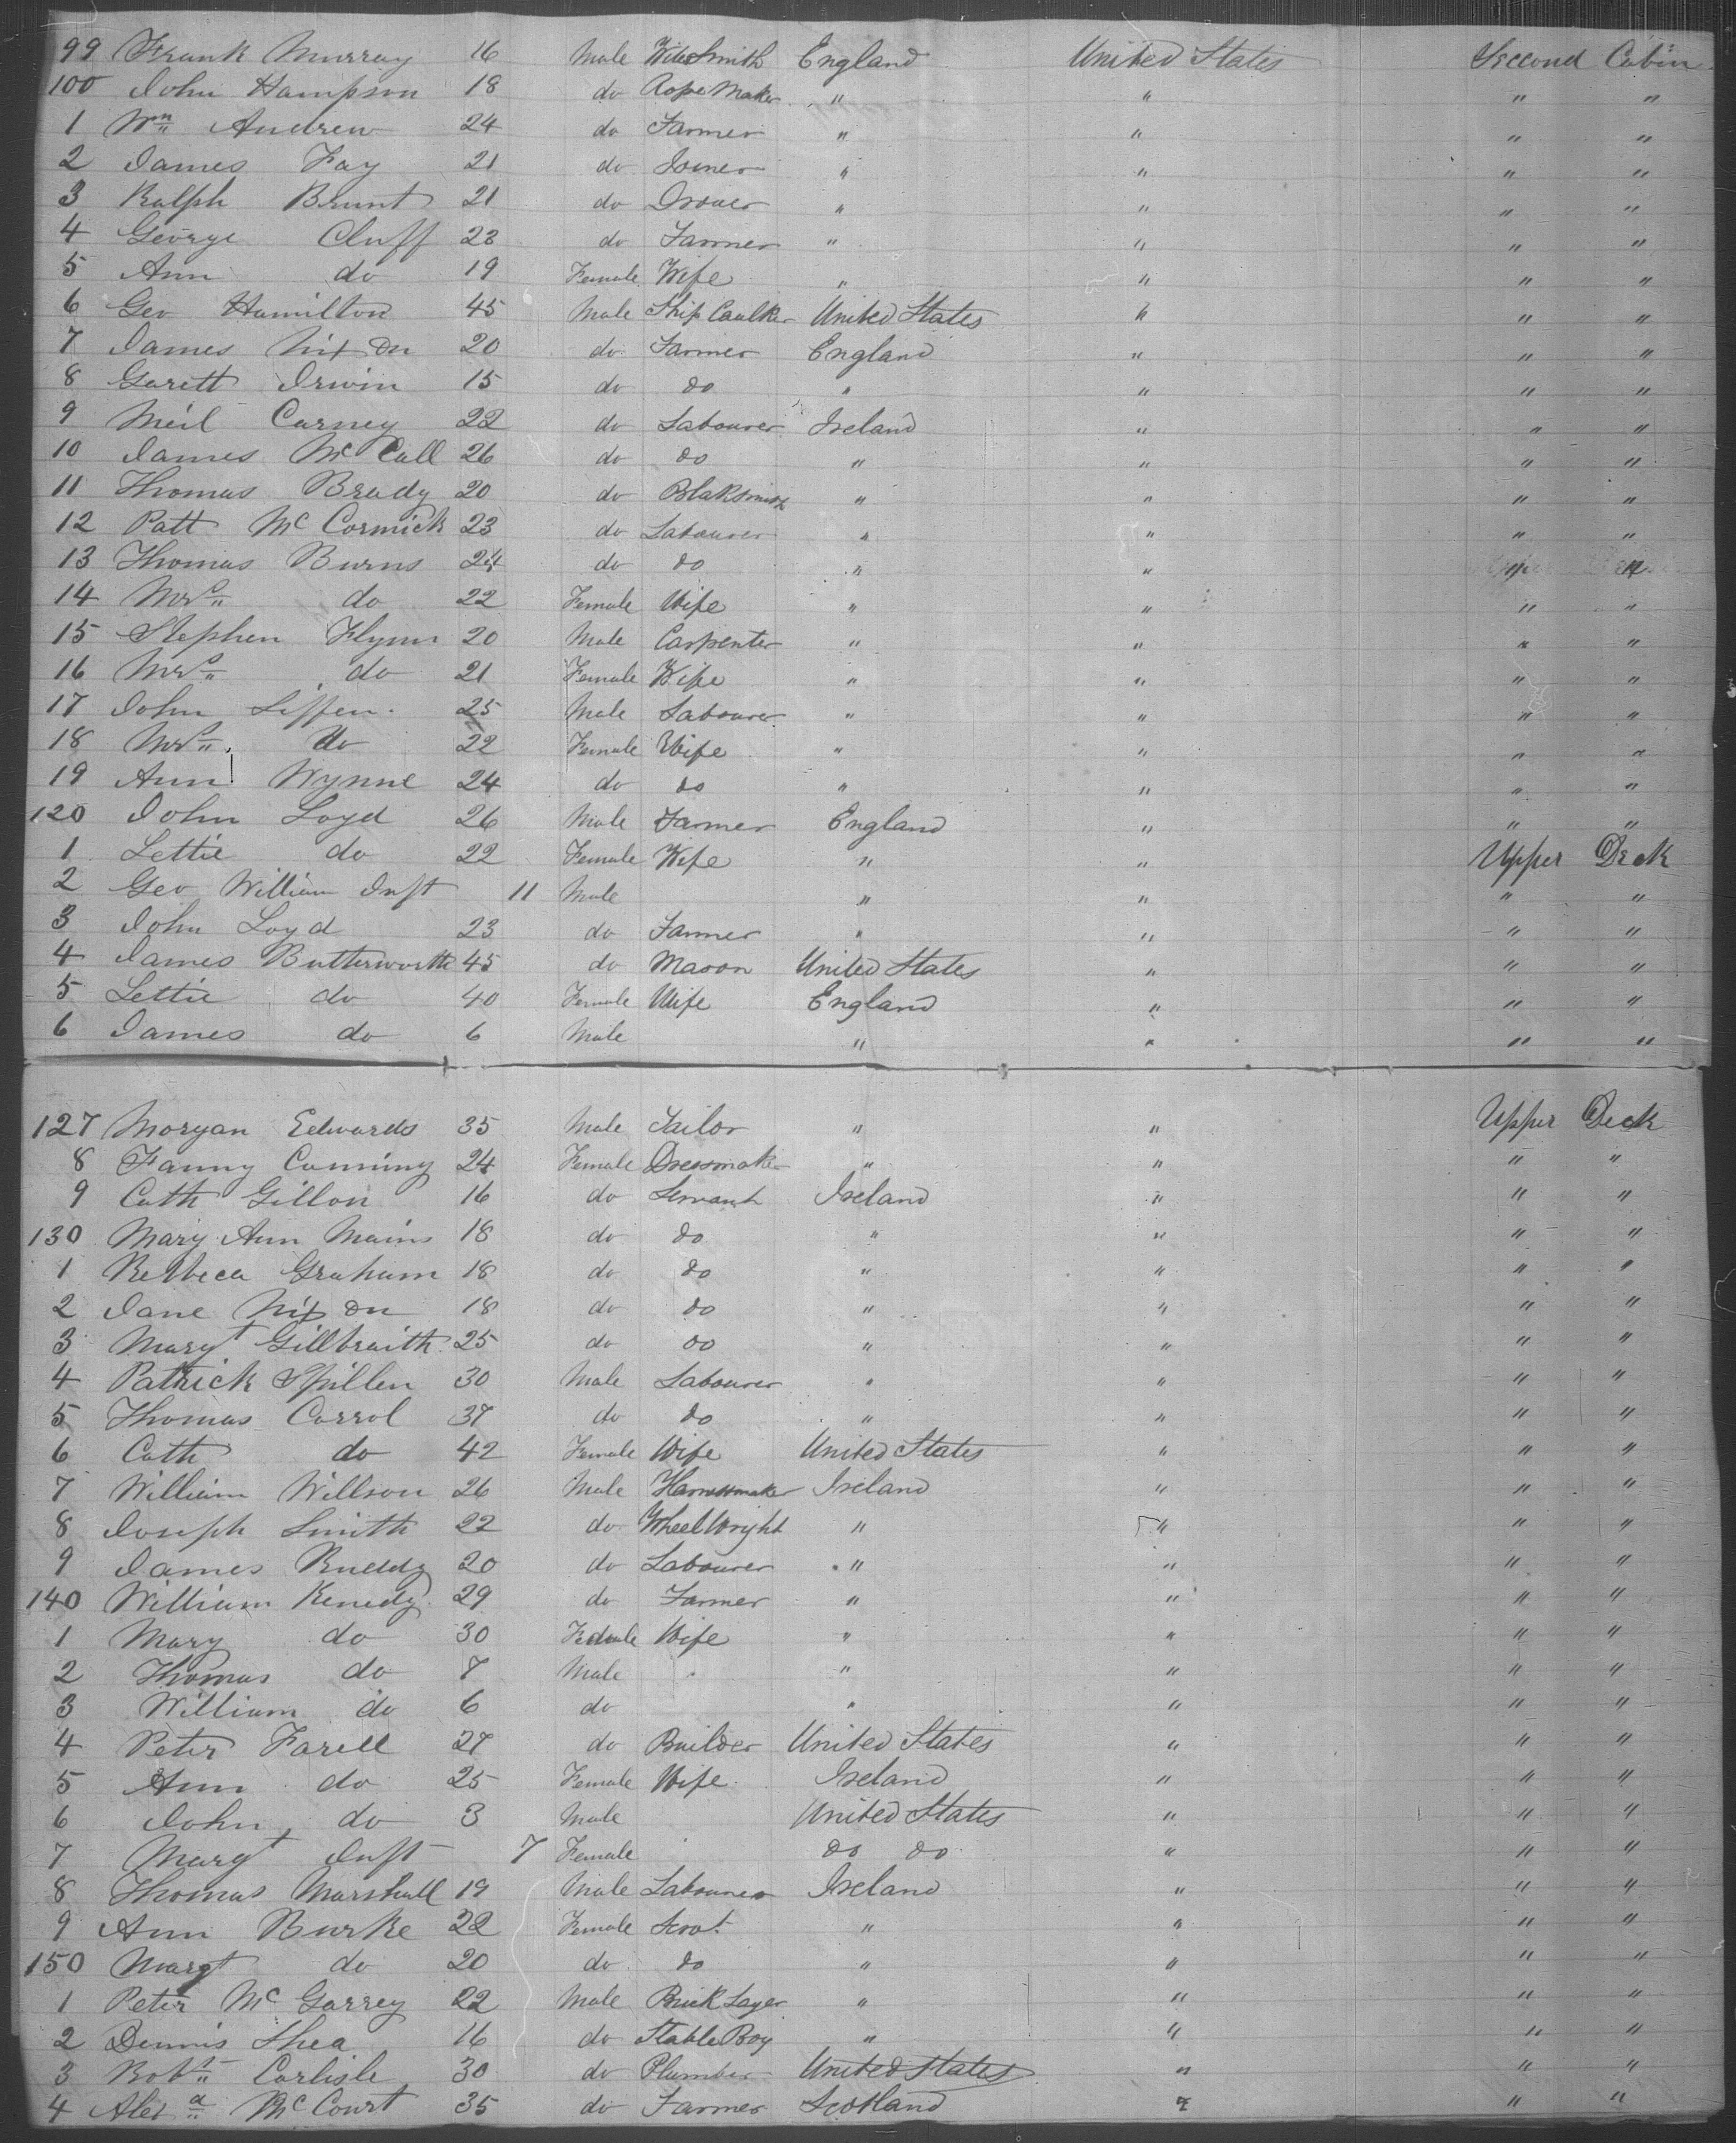 99 Frank Murray 16 Male WireSmith England United States Second Cabin
100 John Hampson 18 do Rope Maker " " " "
1 Wm Andrew 24 do Farmer " " " "
2 James Fay 21 do Joiner " " " "
3 Ralph Brunt 21 do Drover " " " "
4 George Cluff 23 do Farmer " " " "
5 Ann do 19 Female Wife " " " "
6 Geo Hamilton 45 Male Ship Caulker United States " " "
7 James Nixon 20 do Farmer England " " "
8 Garett Irwin 15 do do " " " "
9 Neil Carney 22 do Labourer Ireland " " "
10 James McCall 26 do do " " " "
11 Thomas Brady 20 do Blaksmith " " " "
12 Patt McCormick 23 do Labourer " " " "
13 Thomas Burns 24 do do " " " "
14 Mrs do 22 Female Wife " " " "
15 Stephen Flynn 20 Male Carpenter " " " "
16 Mrs do 21 Female Wife " " " "
17 John Liffen 25 Male Labourer " " " "
18 Mrs do 22 Female Wife " " " "
19 Ann Wynne 24 do do " " " "
120 John Loyd 26 Male Farmer England " " "
1 Lettie do 22 Female Wife " " Upper Deck
2 Geo William Inft 11 Male " " " "
3 John Loyd 23 do Farmer " " " "
4 James Butterworth 45 do Mason United States " " "
5 Lettie do 40 Female Wife England " " "
6 James do 6 Male " " " "
127 Morgan Edwards 35 Male Tailor " " Upper Deck
8 Fanny Cuming 24 Female Dressmaker " " " "
9 Cath Gillon 16 do Servant Ireland " " "
130 Mary Ann Mains 18 do do " " " "
1 Rebbeca Graham 18 do do " " " "
2 Jane Nixon 18 do do " " " "
3 Maryt Gillbraith 25 do do " " " "
4 Patrick Spillen 30 Male Labourer " " " "
5 Thomas Carrol 37 do do " " " "
6 Cath do 42 Female Wife United States " " "
7 William Willson 26 Male Harnessmaker Ireland " " "
8 Joseph Smith 22 do Wheel Wright " " " "
9 James Ruddy 20 do Labourer " " " "
140 William Kenedy 29 do Farmer " " " "
1 Mary do 30 Female Wife " " " "
2 Thomas do 7 Male " " " "
3 William do 6 do " " " "
4 Peter Farell 27 do Builder United States " " "
5 Ann do 25 Female Wife Ireland " " "
6 John do 3 Male United States " " "
7 Margt Inft 7 Female do do " " "
8 Thomas Marshall 19 Male Labourer Ireland " " "
9 Ann Burke 22 Female Servt " " " "
150 Margt do 20 do do " " " "
1 Peter McGarrey 22 Male Brick Layer " " " "
2 Dennis Shea 16 do Stable Boy " " " "
3 Robt Carlisle 30 do Plumber United States " " "
4 Alexa McCourt 35 do Farmer Scotland " " "